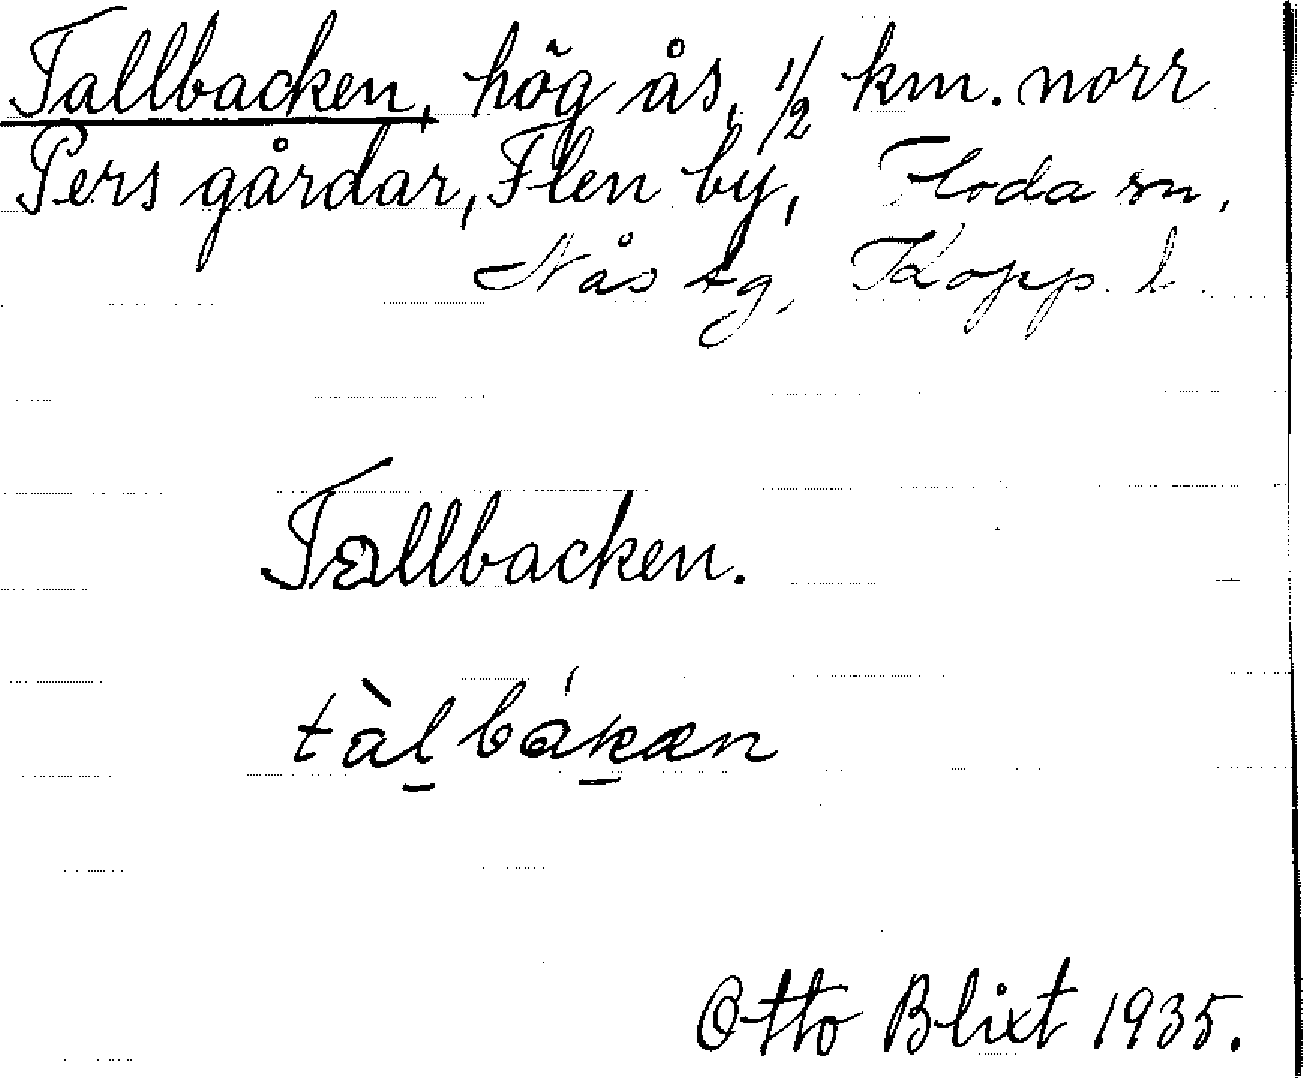 Tallbacken, hög ås, 1/2 km. norr
Pers gårdar, Flen by, Floda sn,
Nås tg, Kopp. l.
Tallbacken.
tàl̲bák̲æn
Otto Blixt 1935.